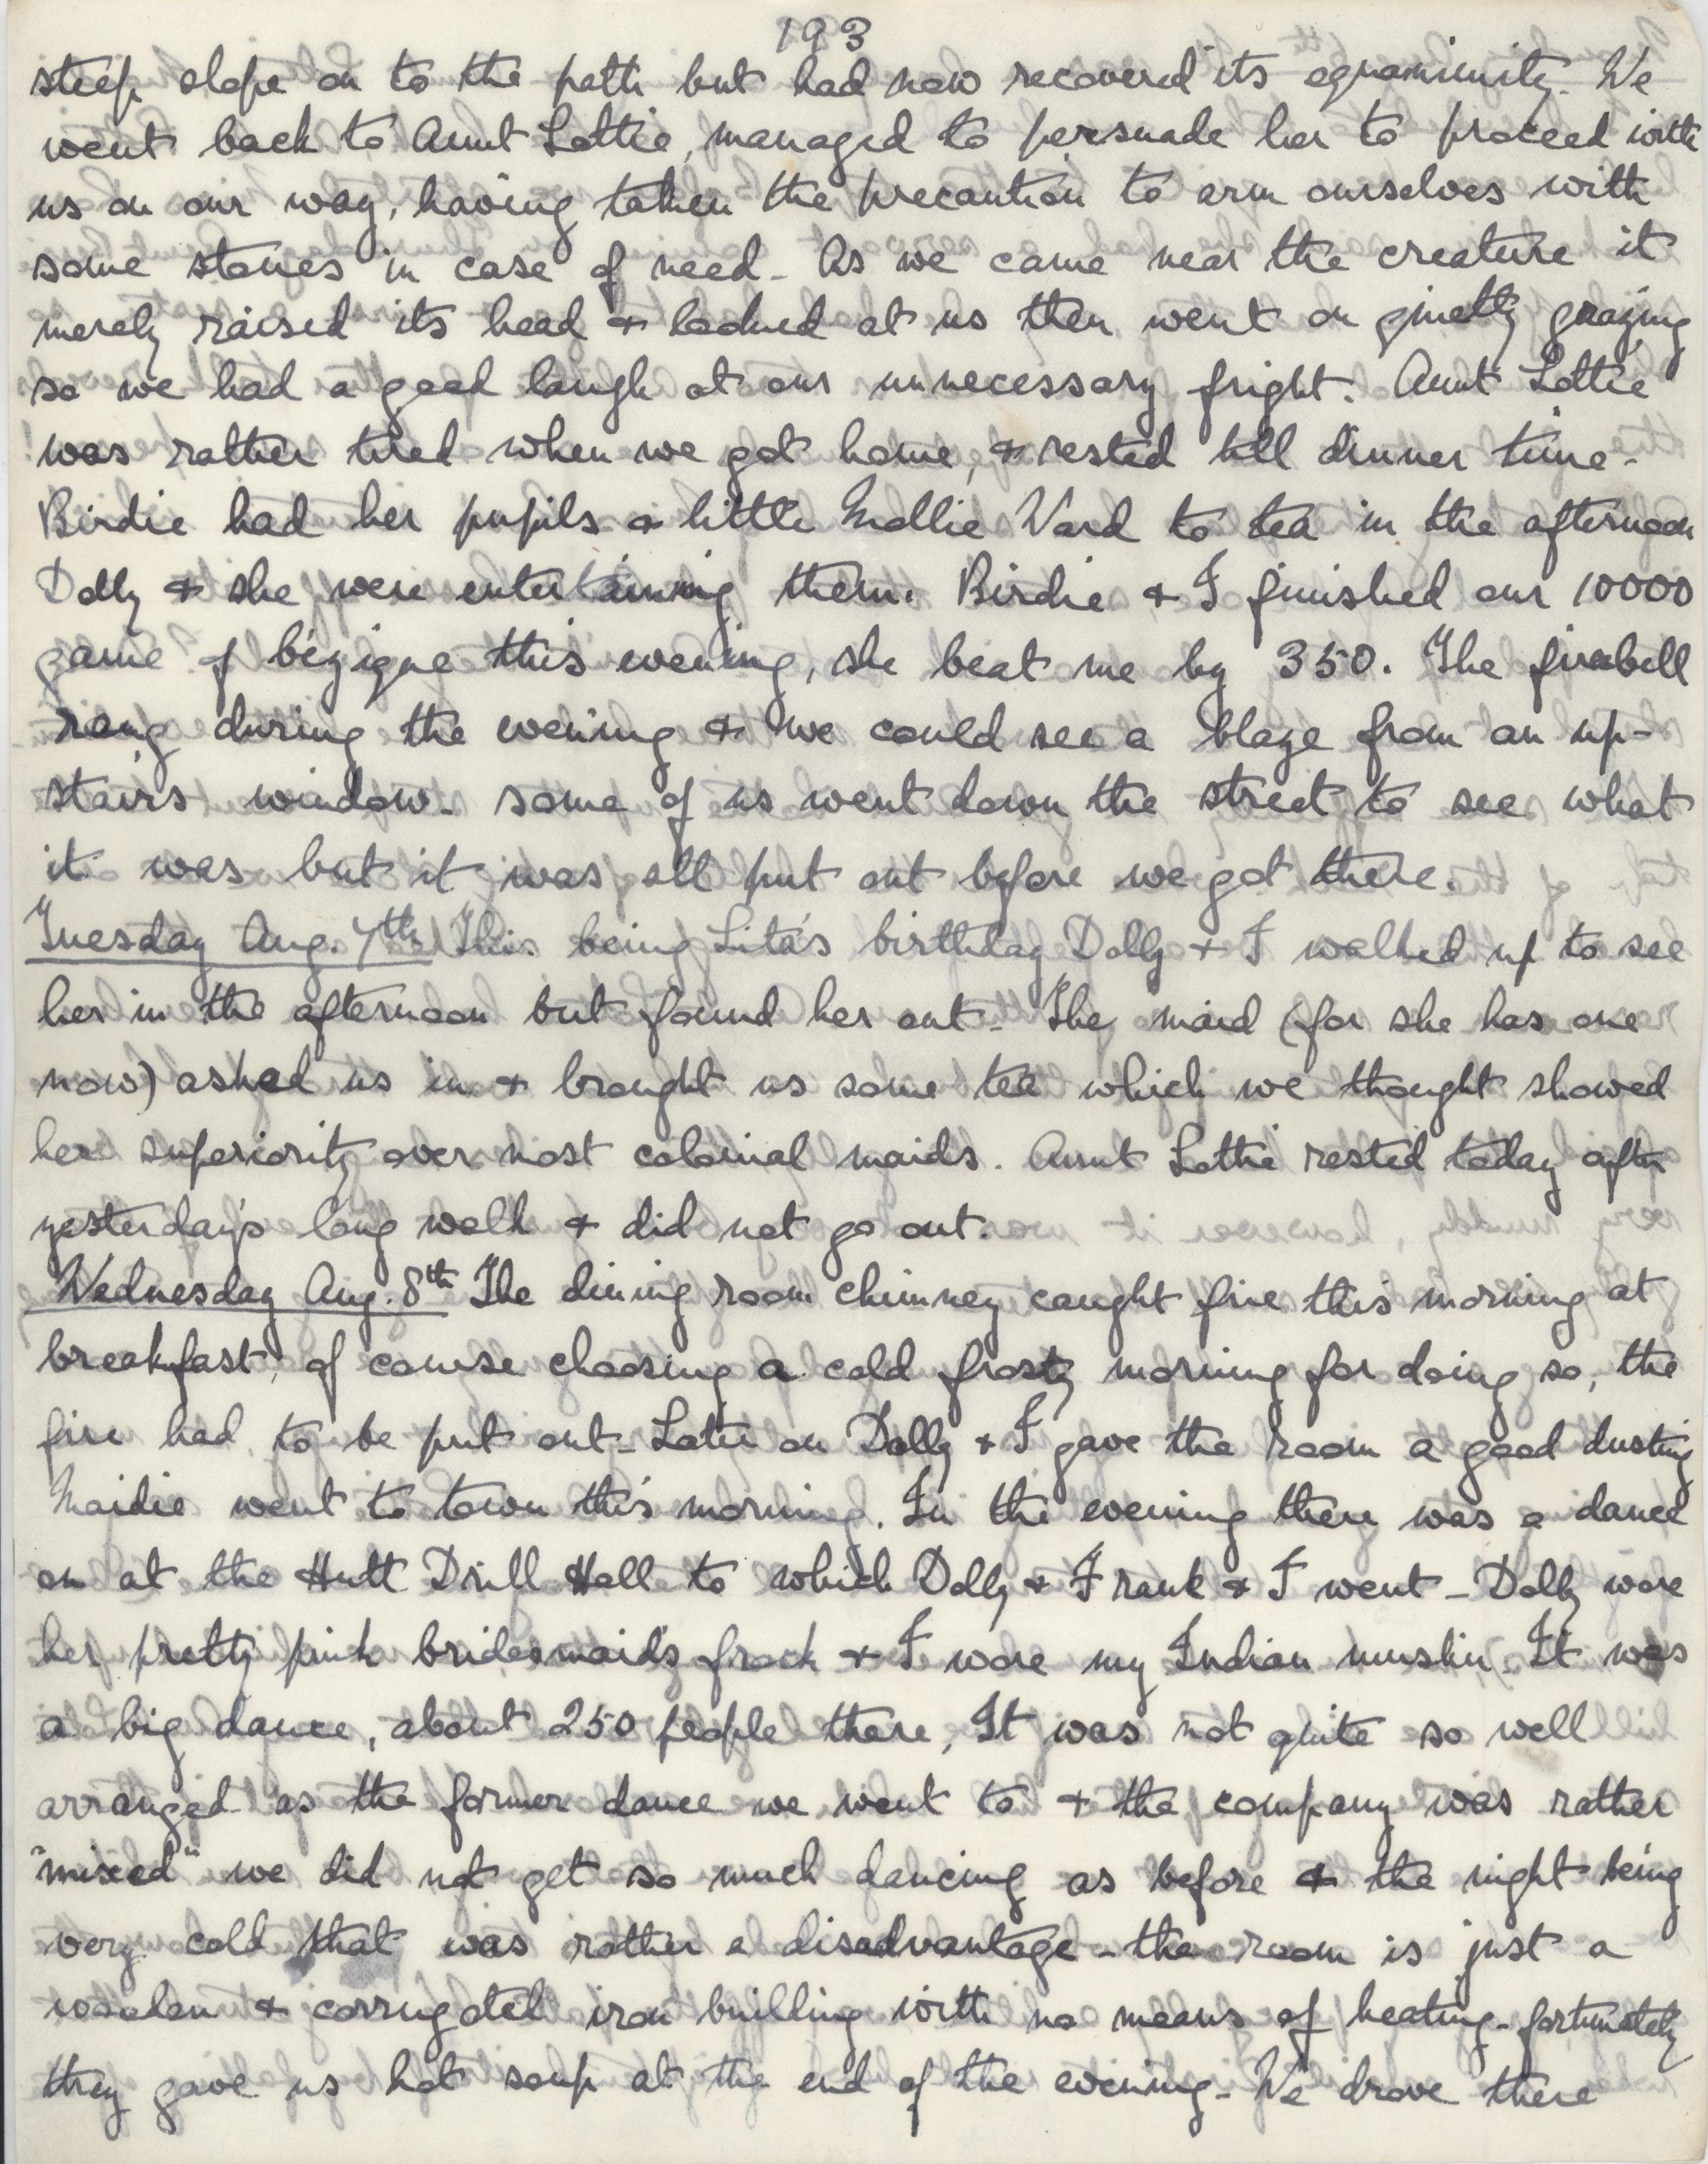 193
steep slope on to the path but had now recovered its equanimity. We
went back to Aunt Lottie, managed to persuade her to proceed with
us on our way, having taken the precaution to arm ourselves with
some stones in case of need - As we came near the creature it
merely raised its head & looked at us then went on quietly grazing
so we had a good laugh at our unnecessary fright. Aunt Lottie
was rather tired when we got home, & rested till dinner time -
Birdie had her pupils & little Mollie Ward to tea in the afternoon
Dolly & she were entertaining them. Birdie & I finished our 10000
game of bézique this evening, she beat me by 350. The firebell
rang during the evening & we could see a blaze from an up-
stairs window - some of us went down the street to see what
it was but it was all put out before we got there.
Tuesday Aug. 7th This being Lita's birthday Dolly & I walked up to see
her in the afternoon but found her out - The maid (for she has one
now) asked us in & brought us some tea which we thought showed
her superiority over most colonial maids. Aunt Lottie rested today after
yesterday's long walk & did not go out.
Wednesday Aug. 8th The dining room chimney caught fire this morning at
breakfast, of course choosing a cold frosty morning for doing so, the
fire had to be put out - Later on Dolly & I gave the room a good dusting
Maidie went to town this morning. In the evening there was a dance
on at the Hutt Drill Hall to which Dolly & Frank & I went - Dolly wore
her pretty pink bridesmaid's frock & I wore my Indian muslin. It was
a big dance, about 250 people there, It was not quite so well
arranged as the former dance we went to & the company was rather
"mixed" we did not get so much dancing as before & the night being
very cold that was rather a disadvantage - the room is just a
wooden & corrugated iron building with no means of heating - fortunately
they gave us hot soup at the end of the evening - We drove there